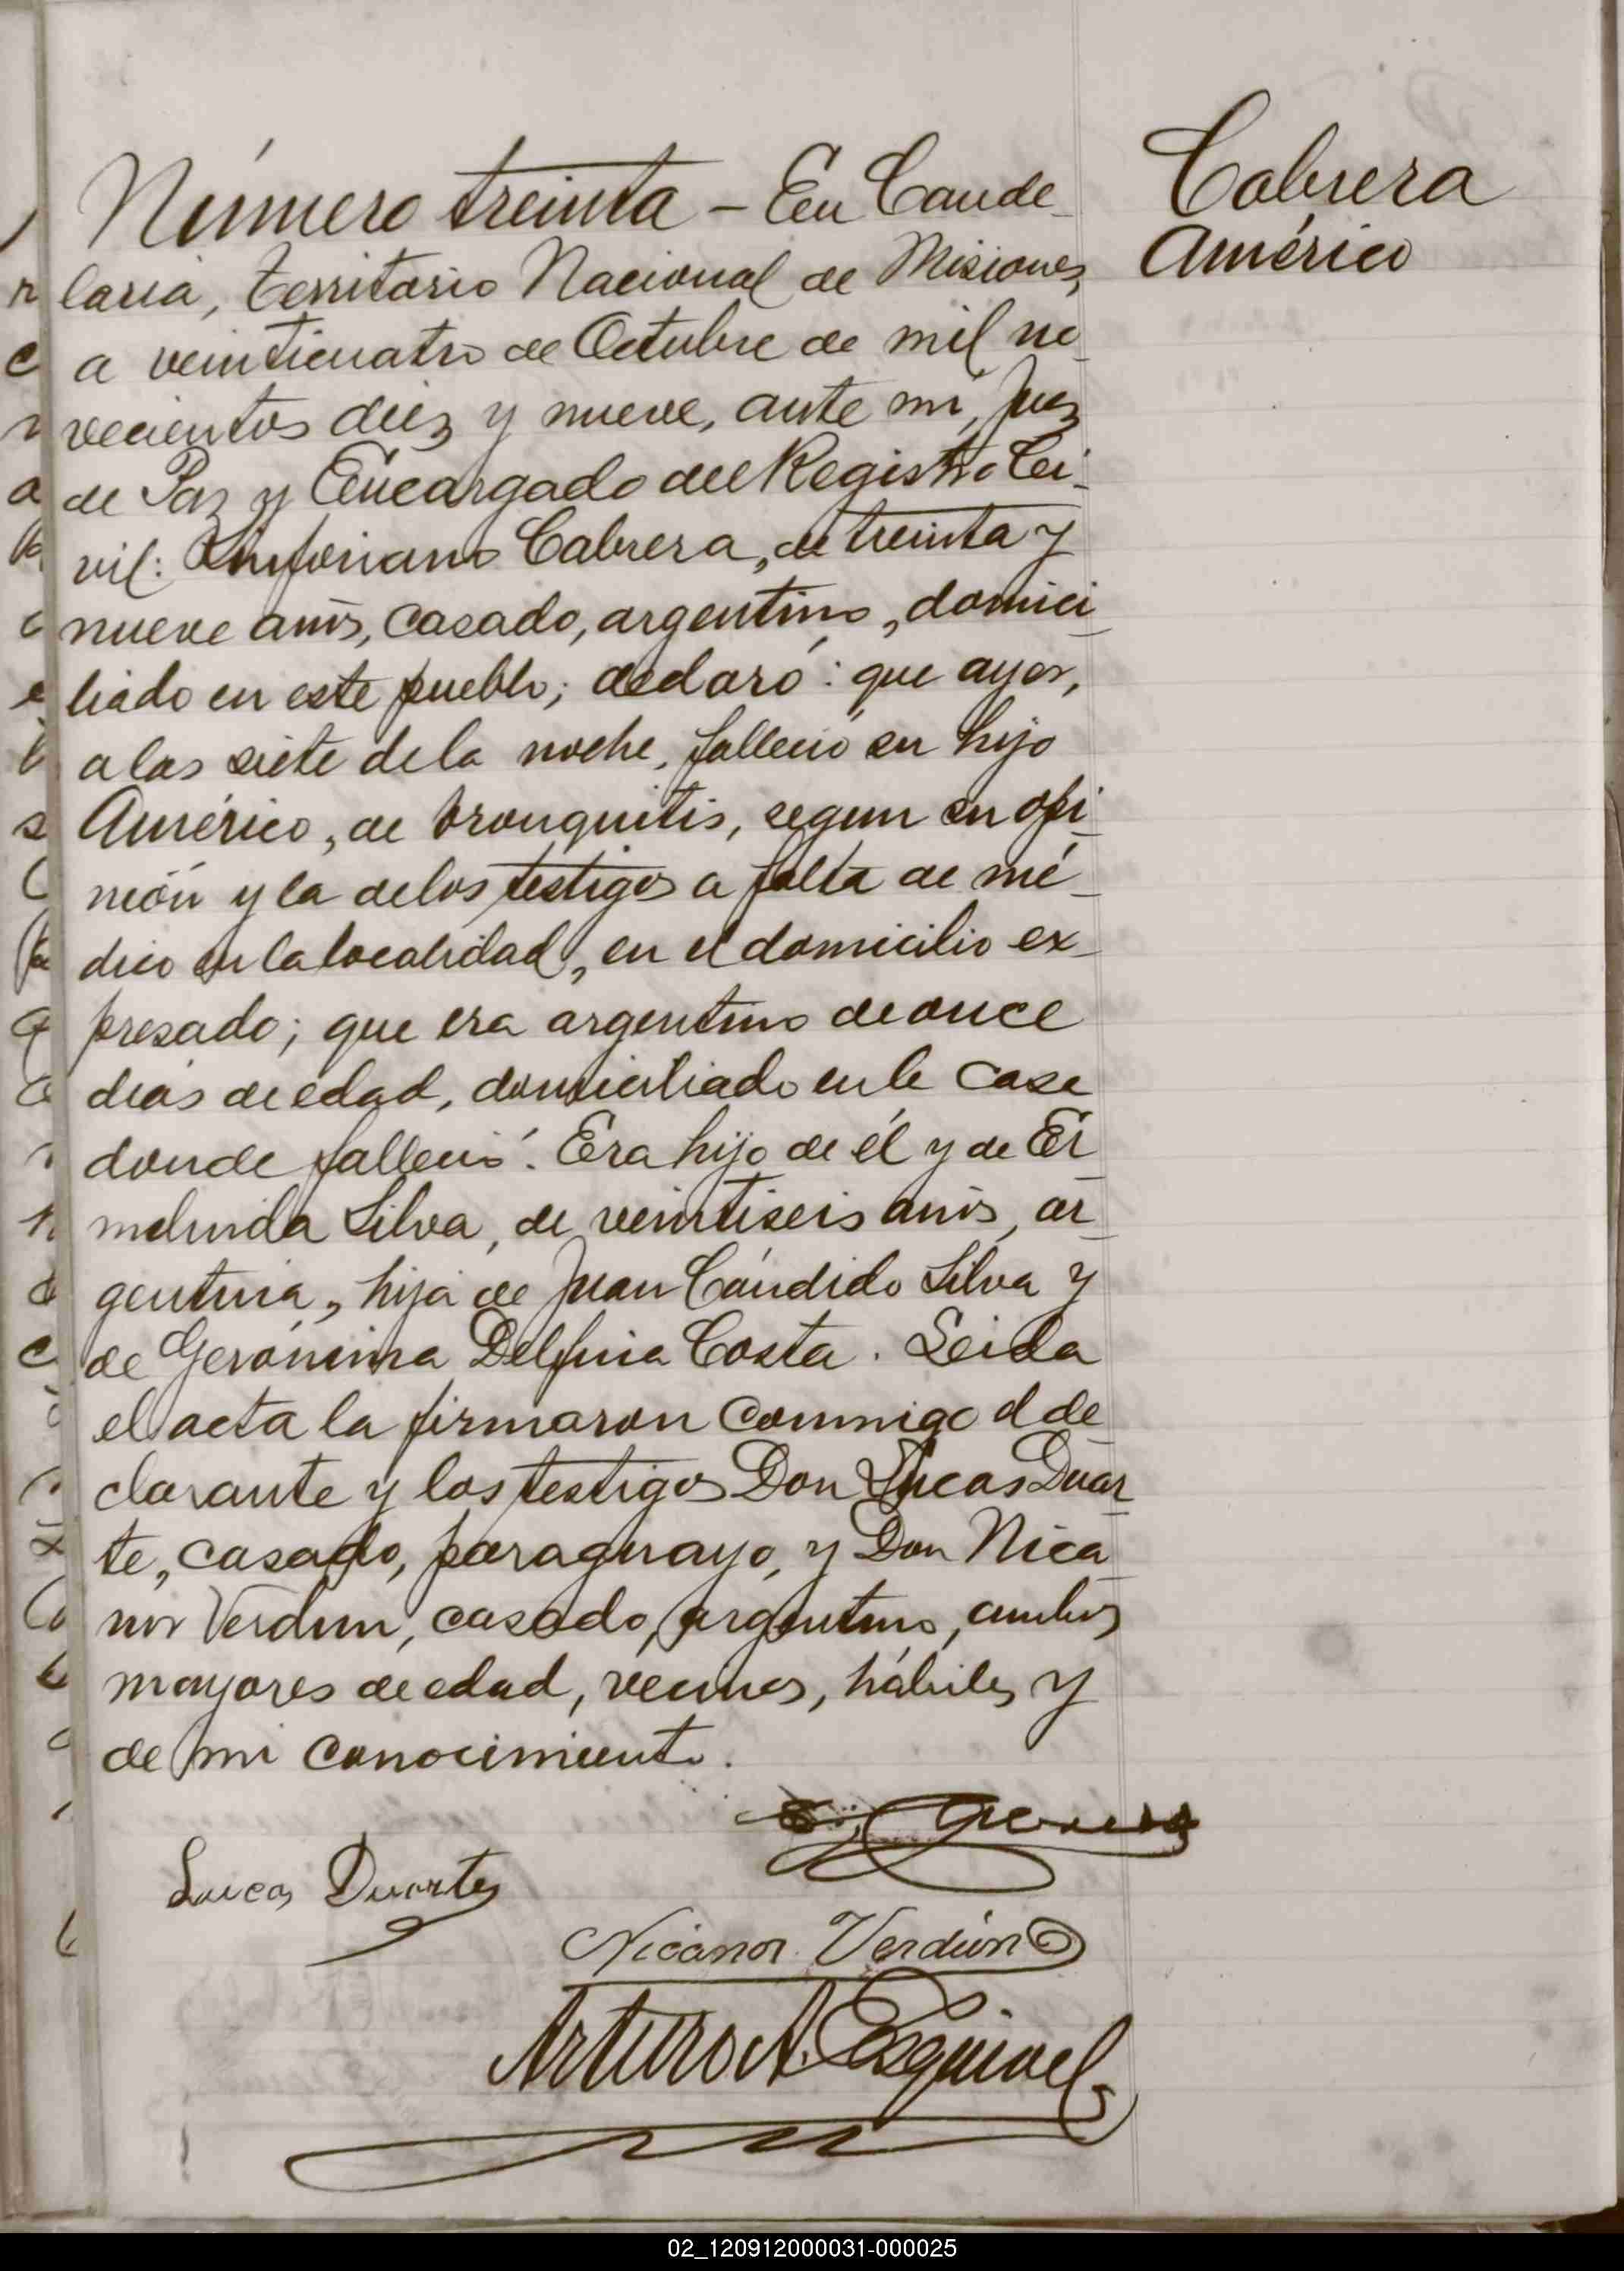 Número treinta – En Cande-
laria, territorio Nacional de Misiones,
a veinticuatro de Octubre de mil no-
vecientos diez y nueve, ante mi, Juez
de Paz y Encargado del Registro Ci-
vil: Sinforiano Cabrera, de treinta y
nueve años, casado, argentino, domici-
liado en este pueblo; declaró: que ayer,
a las siete de la noche, falleció su hijo
Américo, de bronquitis, segun su opi-
nión y la de los testigos a falta de mé-
dico en la localidad, en el domicilio ex-
presado; que era argentino de once
dias de edad, domiciliado en la casa
donde falleció. Era hijo de él y de Er-
melinda Silva, de veintiseis años, ar-
gentina, hija de Juan Cándido Silva y
de Gerónima Delfina Costa. Leida
el acta la firmaron conmigo el de-
clarante y los testigos Don Lucas Duar-
te, casado, paraguayo, y Don Nica-
nor Verdun, casado, argentino, ambos
mayores de edad, vecinos, hábiles y
de mi conocimiento.
Cabrera
Américo
Lucas Duarte
Nicanor Verdún
Arturo A. Esquivel
02_120912000031-000025